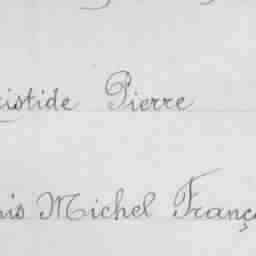 istide Pierre
is Michel Franç